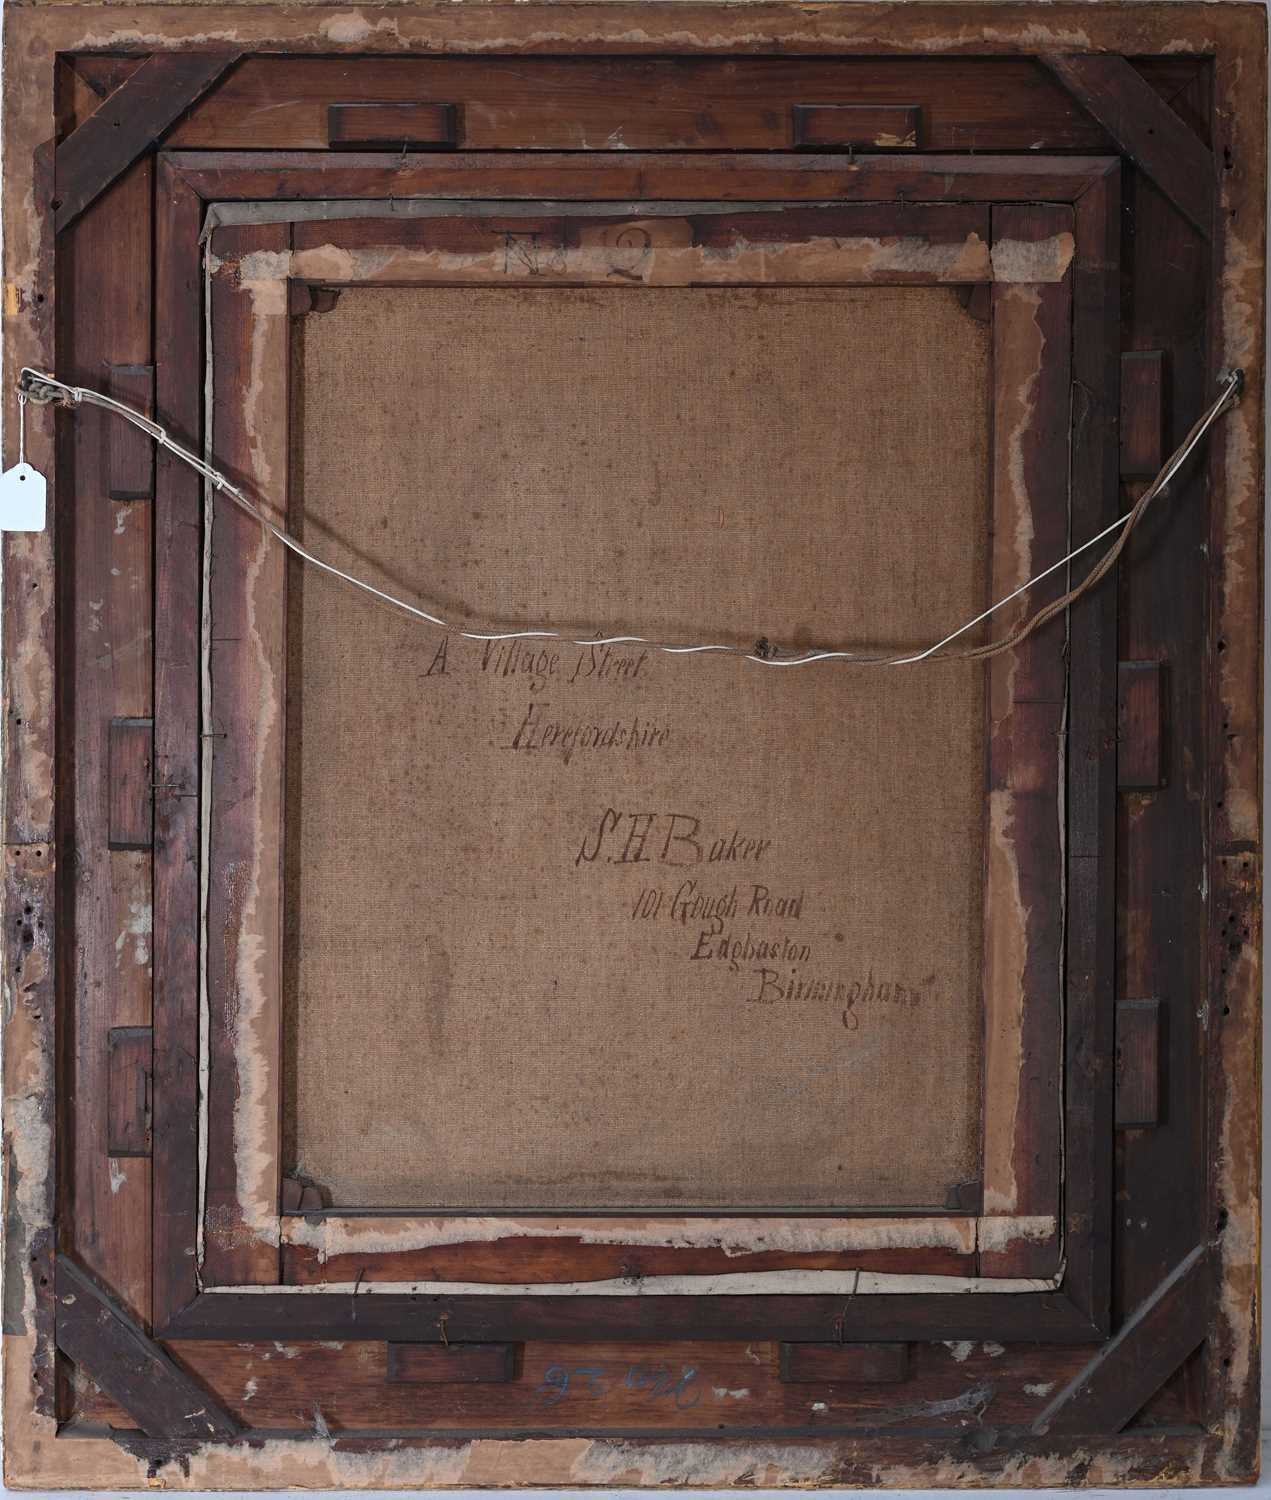 No 2
A Village Street
Herefordshire
S. H Baker
101 Gough Road
Edgbaston
Birmingham